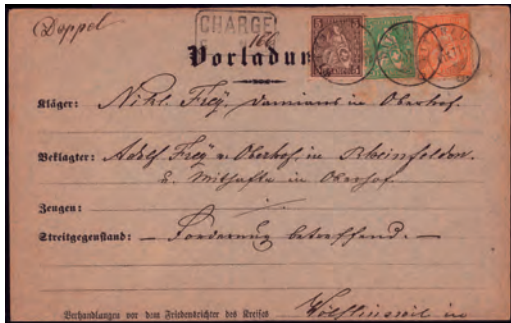 Doppel
CHARGE
166
Vorladun
Kläger: Nikl. Frey, Damians in Oberhof.
Beklagter: Adolf Frey v. Oberhof, in Rheinfelden.
u. Mithafte in Oberhof.
Zeugen:
Streitgegenstand: — Forderung betreffend. —
Verhandlungen vor dem Friedensrichter des Kreises Wölflinswil in